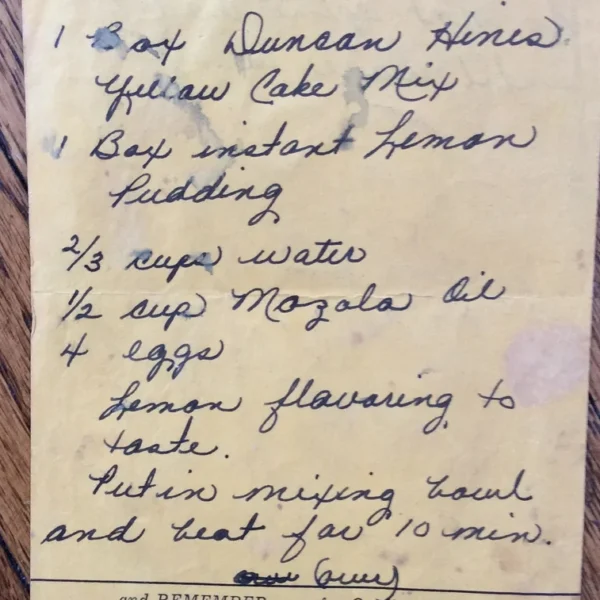 1 Box Duncan Hines
Yellow Cake Mix
1 Box instant Lemon
Pudding
2/3 cups water
1/2 cup Mazola Oil
4 eggs
Lemon flavoring to
taste.
Put in mixing bowl
and beat for 10 min.
(over)
and REMEMBER